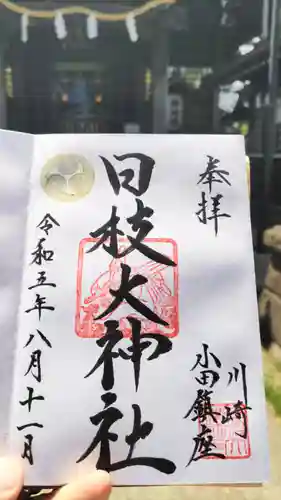 奉拝
川崎
小田鎮座
日枝大神社
令和五年八月十一日